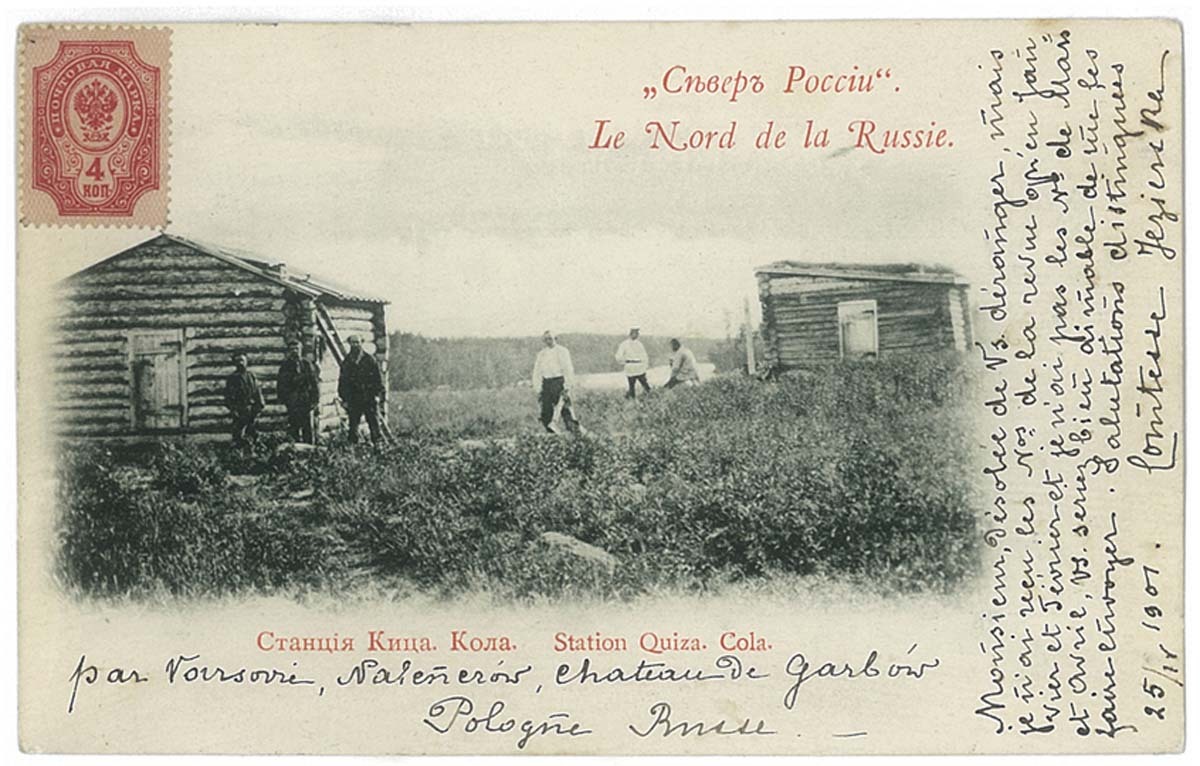 ПОЧТОВАЯ МАРКА
4
КОП
„Сѣверъ Россіи“.
Le Nord de la Russie.
Станція Кица. Кола. Station Quiza. Cola.
par Varsovie, Nałenczów, chateau de Garbów
Pologne Russe. —
Monsieur, Désolée de Vs. déranger, mais
je n'ai reçu les Nos de la revue qu'en Jan=
vier et Février et je n'ai pas les Nos de Mars
et Avril, vs. seriez bien aimable de me les
faire envoyer. Salutations distinguées
25/IV 1901. Comtesse Jezierska